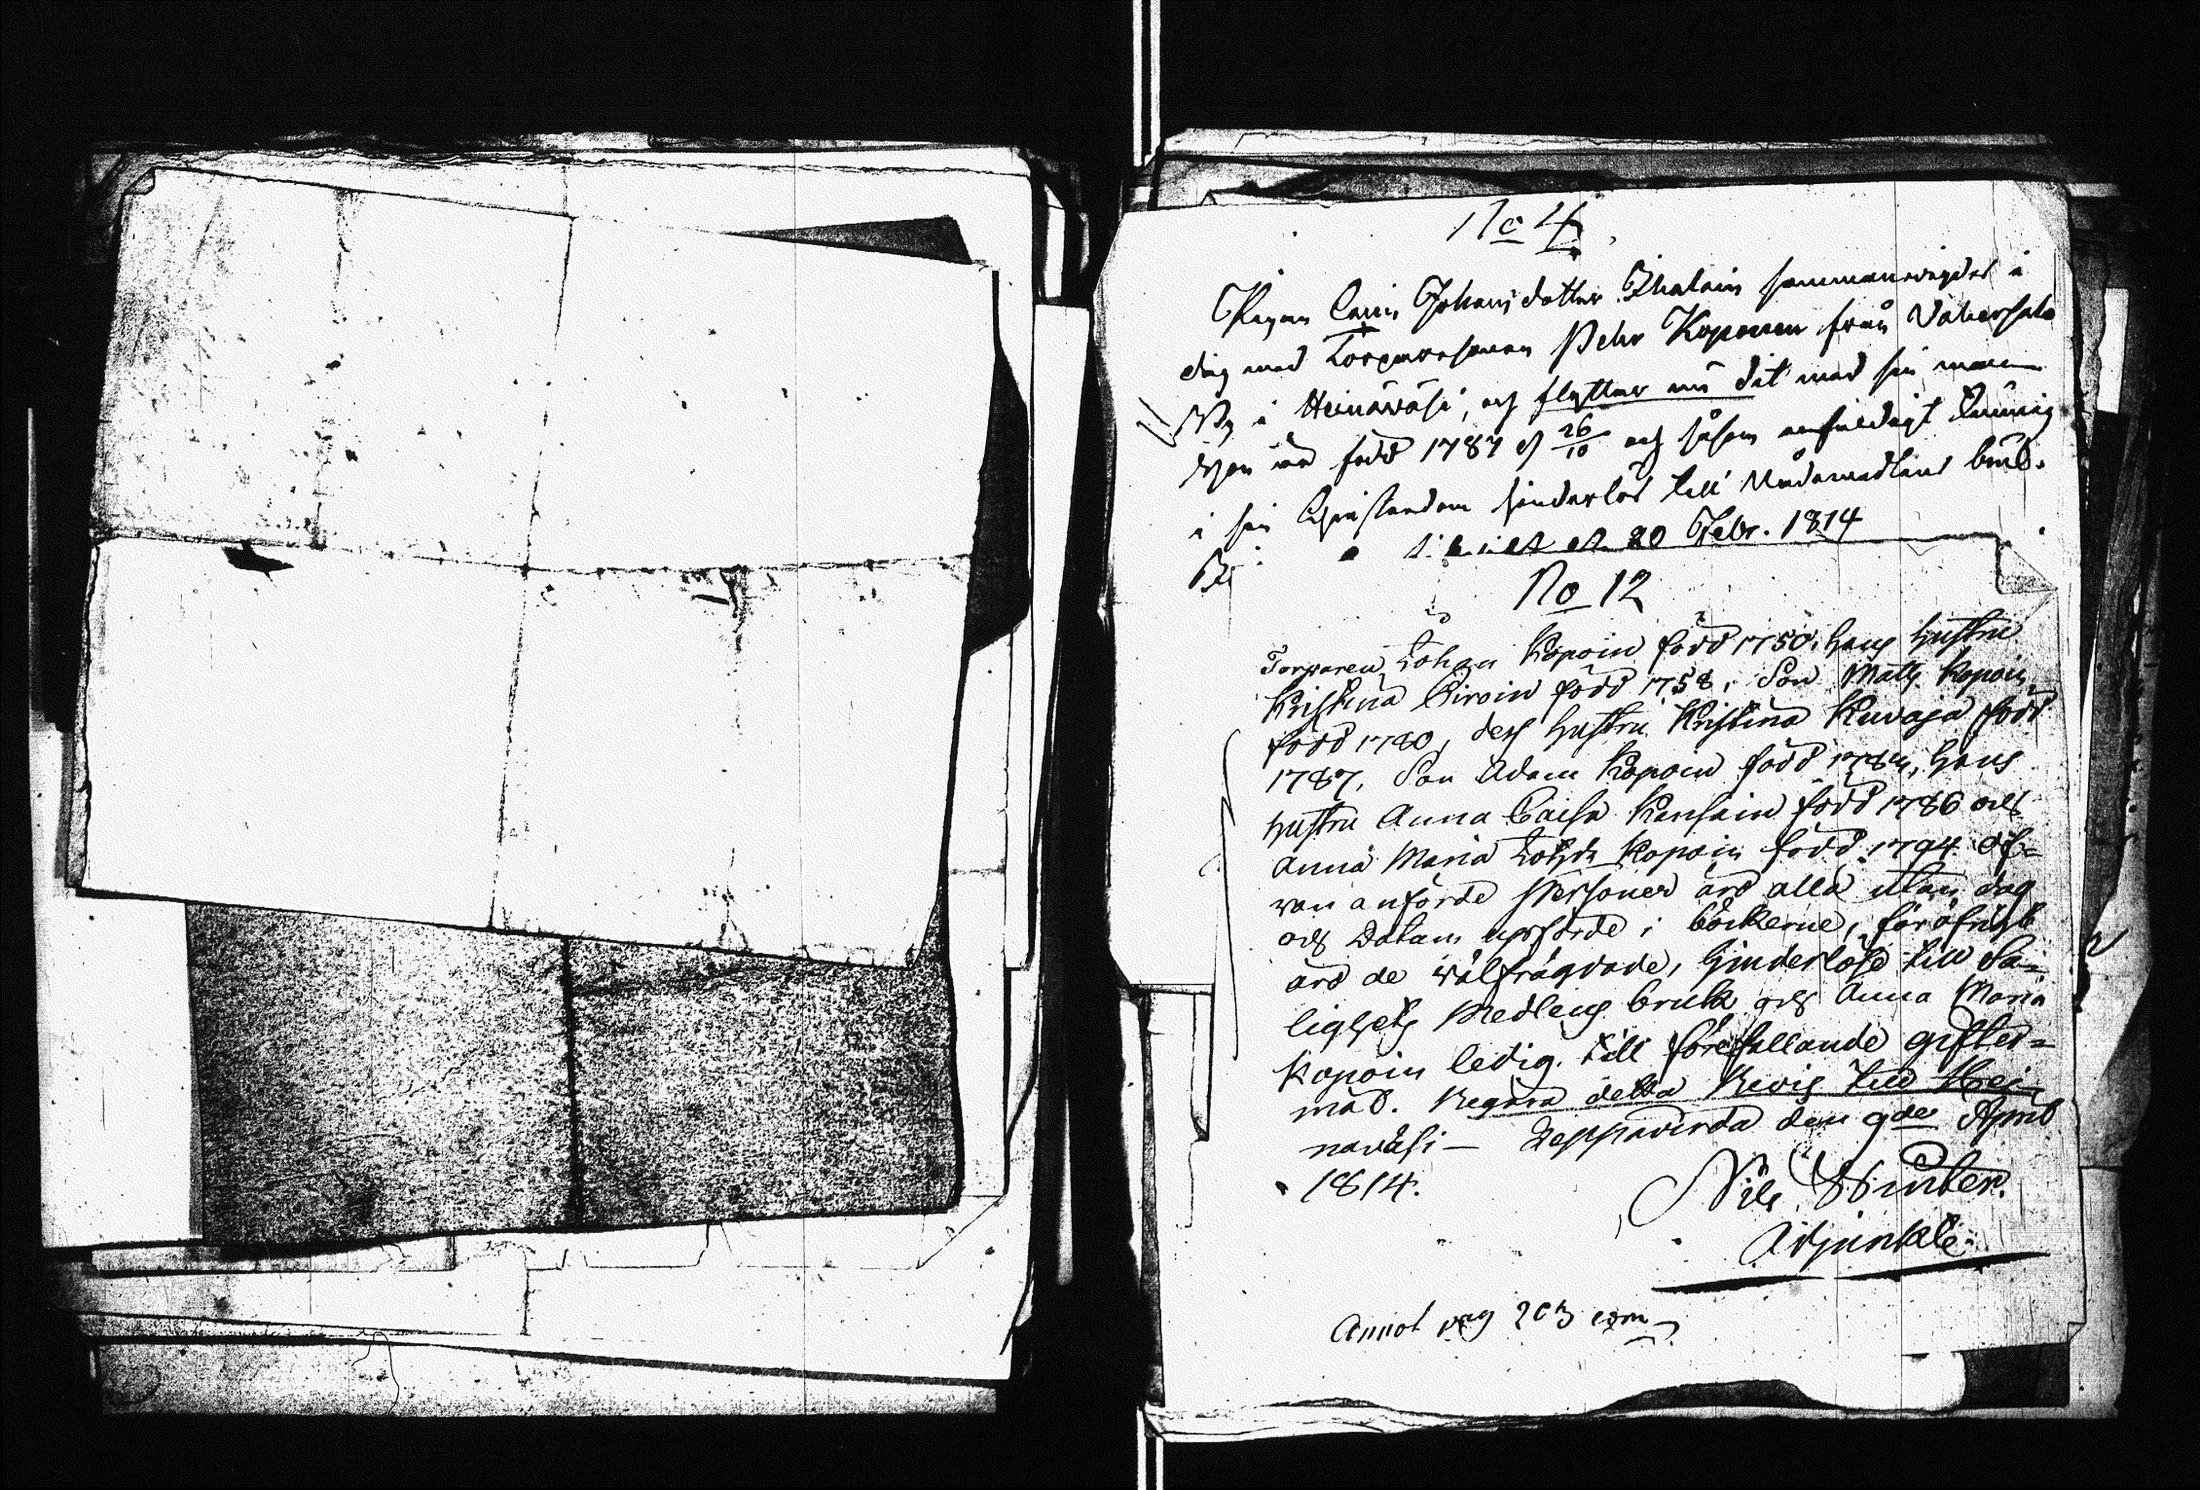 No 4
Pigan Carin Johansdotter Ihalain sammanvigdes i
dag med Torparesonen Pehr Koponen från Vihersalo
By i Heinäväsi, och flyttar nu dit med sin man
Hon är född 1787 d 26/10 och såsom enfaldigt kunnig
i sin Christendom hinderlös till Nådemedlens bruk.
20 Febr. 1814
No 12
Torparen Johan Kopoin född 1750, hans hustru
Kristina Piroin född 1758, Son Matts Kopoin
född 1780, dess hustru Kristina Kuvaja född
1787, Son Adam Kopoin född 1784, hans
hustru Anna Caisa Kansain född 1786 och
Anna Maria Johsdr Kopoin född 1794. Of=
van anförde Personer äro alla utan dag
och Datam upförde i böckerne, föröfrigt
äro de välfrägdade, hinderlöse till Sa=
lighets Medlens bruk och Anna Maria
Kopoin ledig till förefallande gifter=
mål. Begära detta Bevis till Hei=
naväsi — Leppävirda den 9de April
1814.
Nils Winter.
Adjunkt.
Annot pag 203